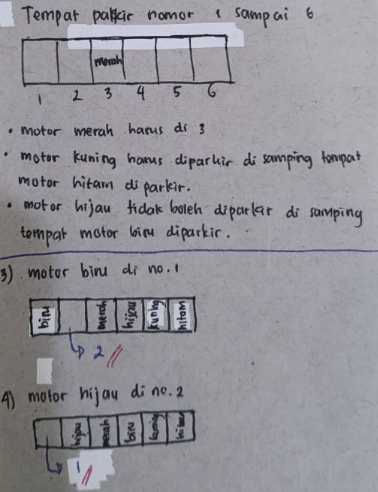 Tempat parkir nomor 1 sampai 6
merah
1 2 3 4 5 6
• motor merah harus di 3
• motor kuning harus diparkir di samping tempat
motor hitam di parkir.
• motor hijau tidak boleh diparkir di samping
tempat motor biru diparkir.
3) motor biru di no. 1
biru merah hijau kuning hitam
2
4) motor hijau di no. 2
hijau merah biru kuning hitam
1